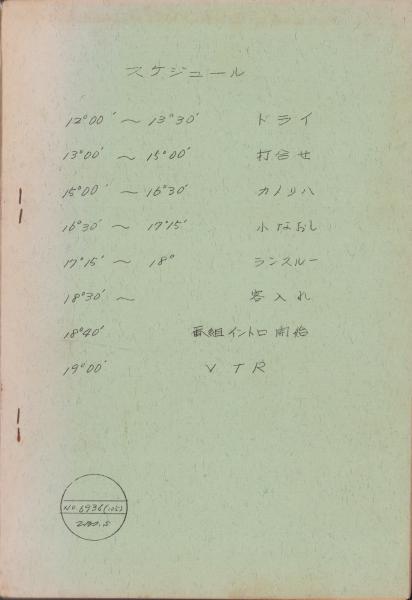 スケジュール
12°00' ～ 13°30' ドライ
13°00' ～ 15°00' 打合せ
15°00' ～ 16°30' カメリハ
16°30' ～ 17°15' 小なおし
17°15' ～ 18° ランスルー
18°30' ～ 客入れ
18°40' 番組イントロ開始
19°00' VTR
No 6936